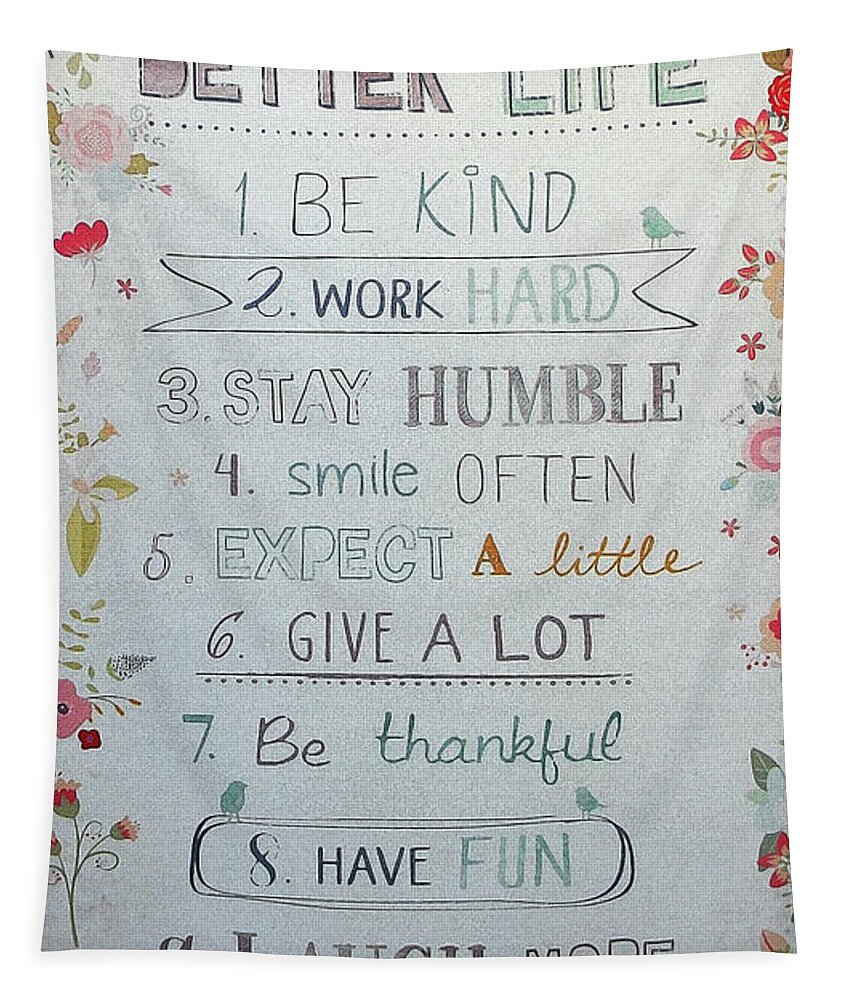 BETTER LIFE
1. BE KiND
2. WORK HARD
3. STAY HUMBLE
4. smile OFTEN
5. EXPECT A little
6. GIVE A LOT
7. Be thankful
8. HAVE FUN
9. LAUGH MORE